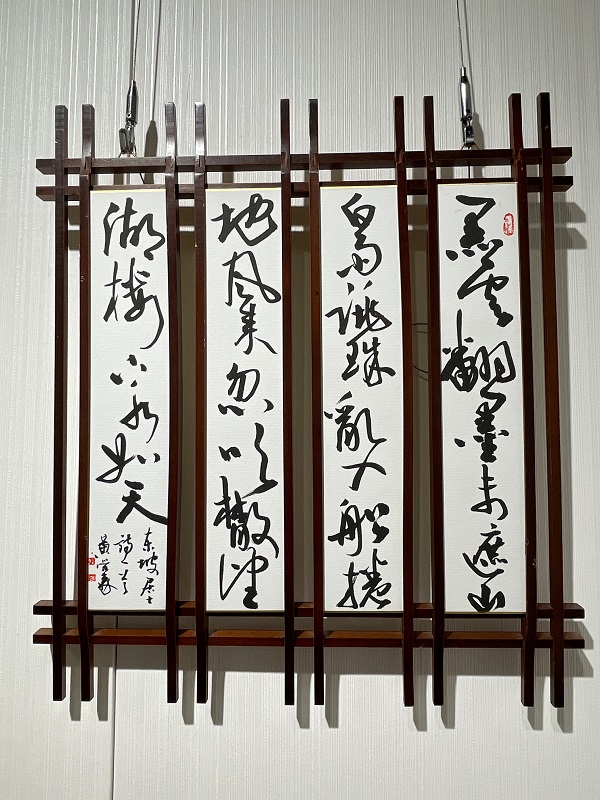 黑雲翻墨未遮山
白雨跳珠亂入船捲
地風来忽吹散望
湖樓下水如天
东坡居士
詩一首